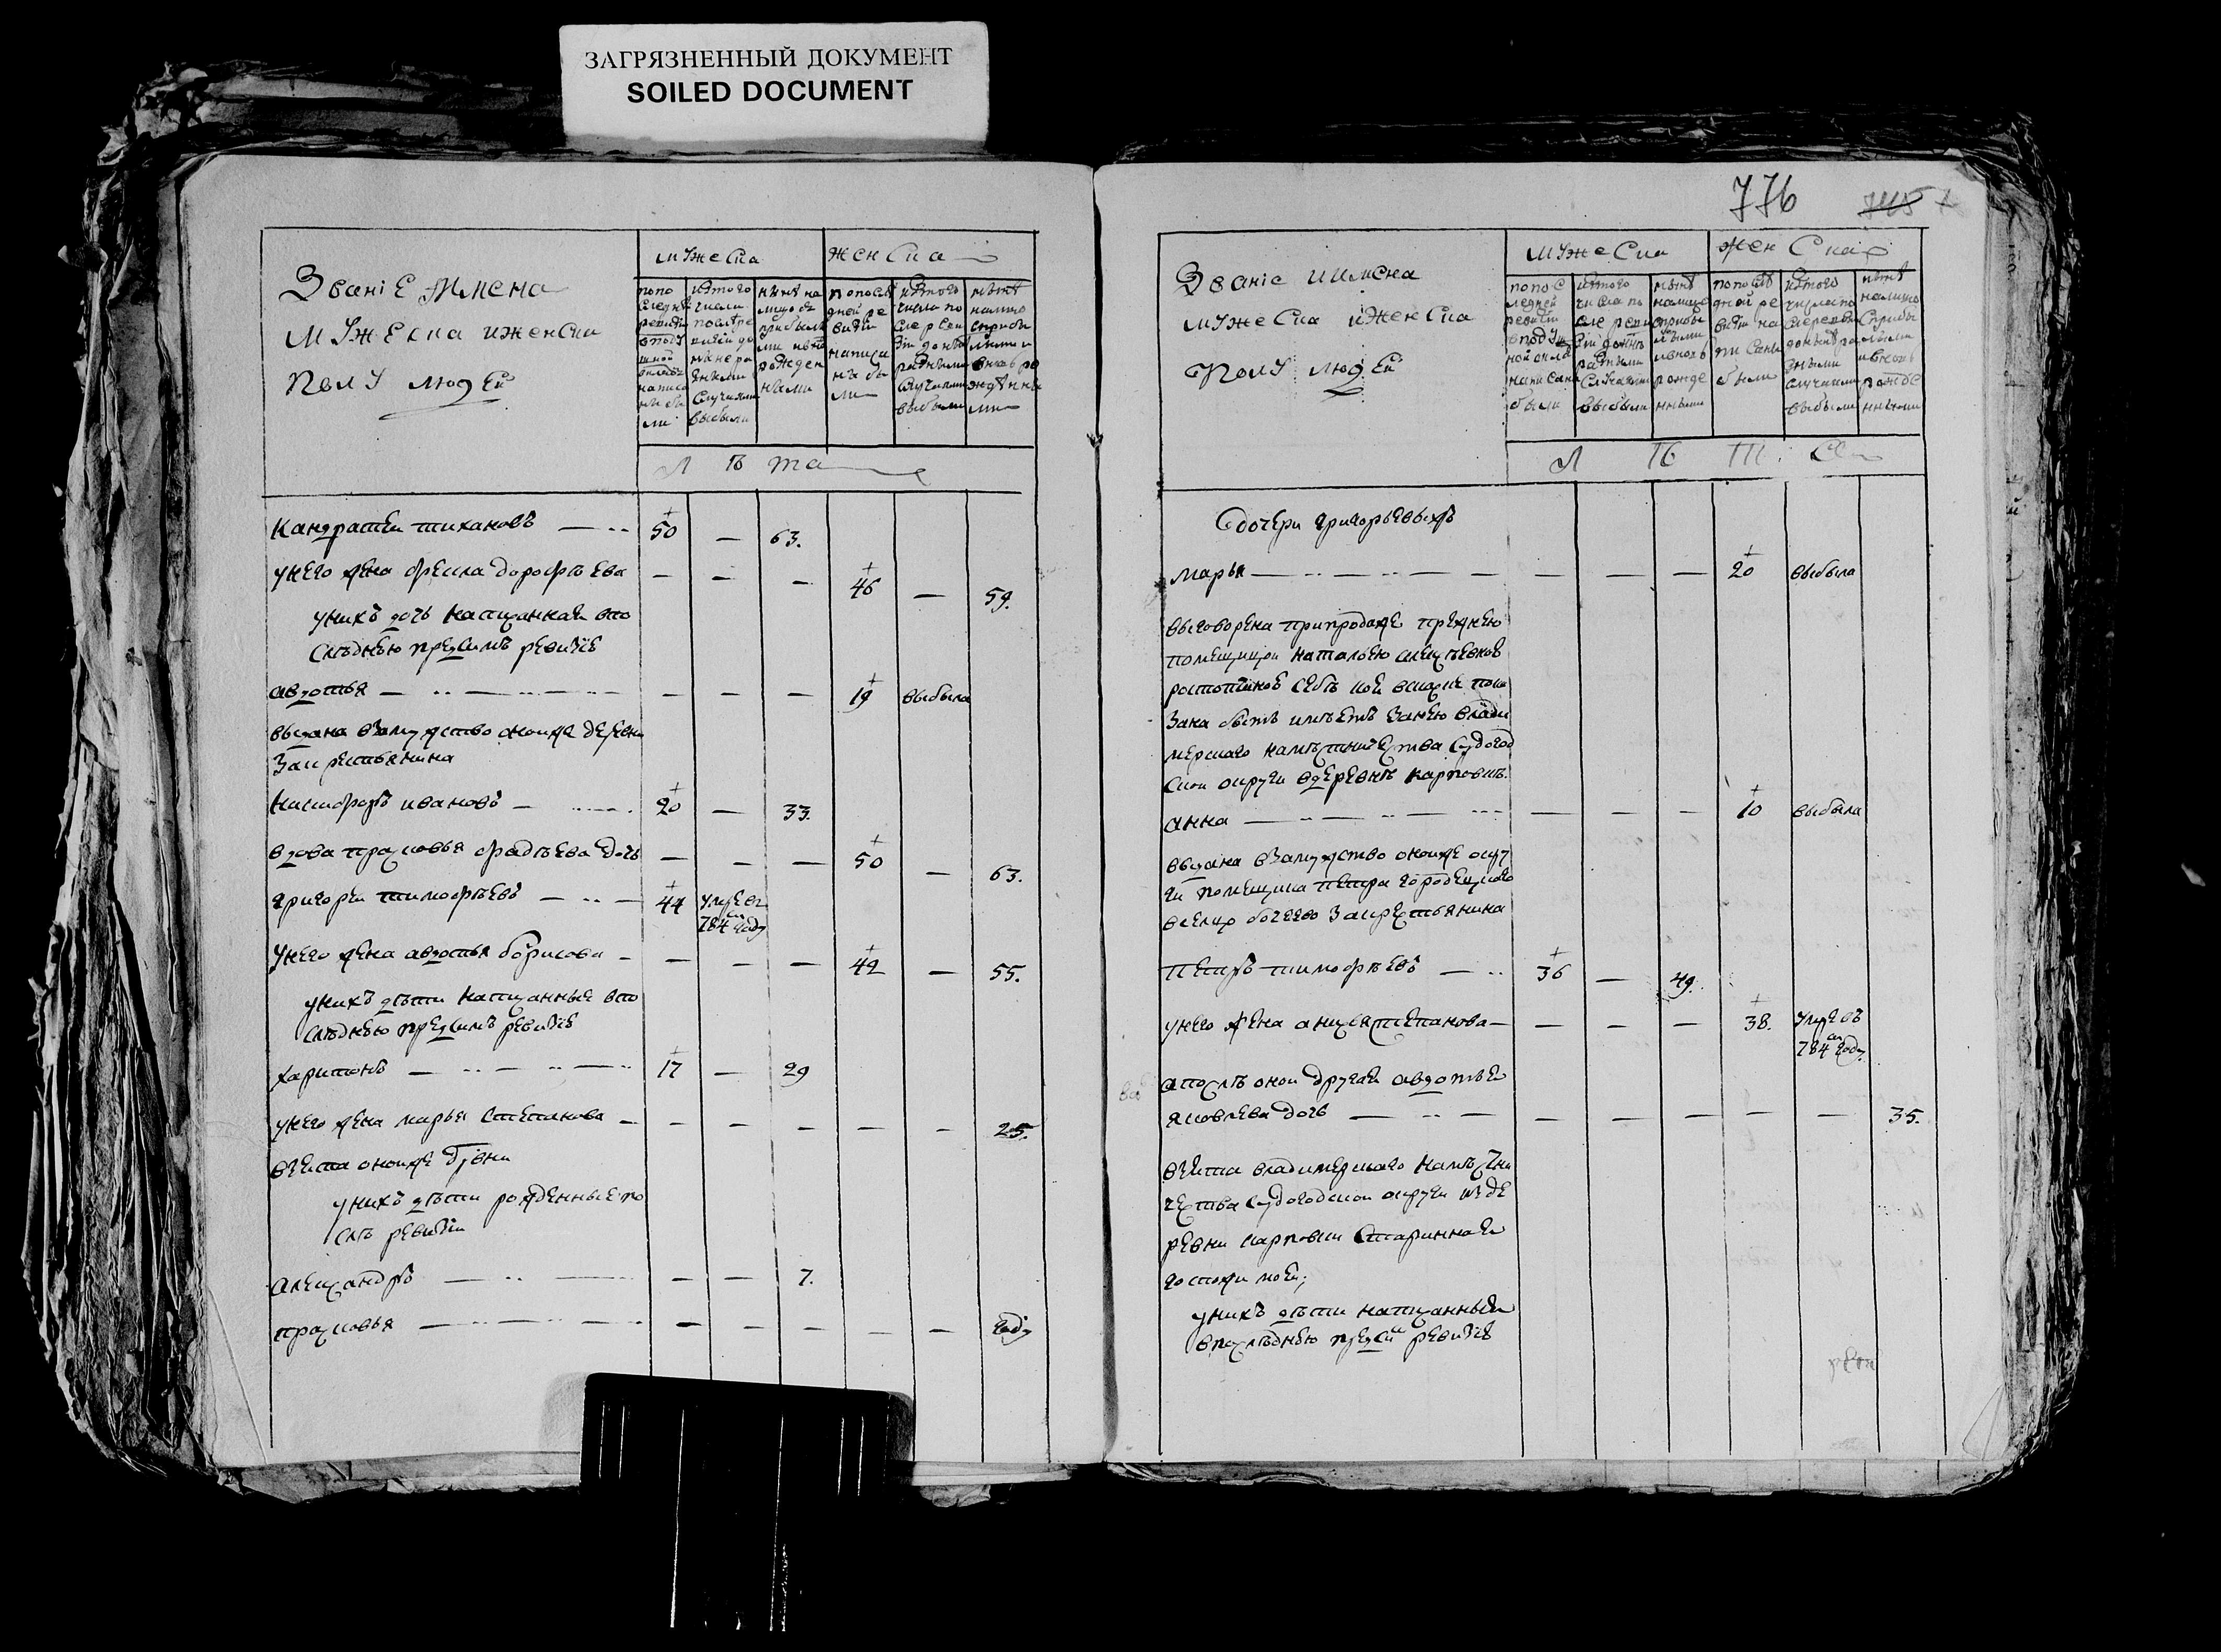 ЗАГРЯЗНЕННЫЙ ДОКУМЕНТ
SOILED DOCUMENT
Званіе Имена
мужеска иженска
полу людей
мужеска
женска
попо
следне
ревизіи
вподу
шной
оклад
написа
ны бы
ли
изтого
числа
после ре
визіи до
ныне ра
зными
случаями
выбыли
ныне на
лицо съ
прибылы
ми ивновь
рожден
ными
попосле
дней ре
визіи
написа
ны бы
ли
изтого
числа по
сле реви
зіи доны
разными
случаями
выбыли
ныне
налицо
сприбы
лыми и
вновь ро
жденны
ми
Л ѣ та
кандратеи тихановъ
50 — 63.
унего жена фекла дорофѣева
46 — 59.
унихъ дочь написанная впо
слѣднею предсимъ ревизіе
авдотья
19 выбыла
выдана взамужство оноиже деревни
закрестьянина
никифоръ ивановъ
20 — 33.
вдова прасковья фадѣева дочь
50 — 63.
григореи тимофѣевъ
44 умре въ
784м году
унего жена авдотья борисова
42 — 55.
унихъ дѣти написанные впо
слѣднею предсимъ ревизіе
харитонъ
17 — 29
унего жена марья степанова
25.
взята оноиже дрвни
унихъ дѣти рожденные по
слѣ ревизіи
александръ
7.
прасковья
году
776
745
Званіе иимена
мужеска иженска
полу людей
мужеска
женска
попос
ледней
ревизіи
вподуш
ной окла
написаны
были
изтого
числа по
сле реви
зіи доныне
разными
случаями
выбыли
ныне
налицо
сприбы
лыми
ивновь
рожде
нными
попосле
дней ре
визіи на
писаны
были
изтого
числапо
слереви
доныне ра
зными
случаими
выбыли
ныне
налицо
сприбы
лыми
ивновь
рожде
нными
Л ѣ т а
дочери григорьевыхъ
марья
20 выбыла
выговорена припродаже прежнею
помещицеи натальею алексѣевнои
растопчинои себѣ
зана быть имѣетъ занею влади
мерскаго намѣстничества судогод
скои округи вдеревнѣ карповкѣ.
анна
10 выбыла
выдана взамужство оноиже окру
ги помещика петра городецкаго
закрестьянина
петръ тимофѣевъ
36 — 49.
унего жена анисья степанова
38. умре въ
784м году
апослѣ онои другая авдотья
яковлева дочь
35.
взята владимерскаго намѣстни
чества судогодскои округи из де
ревни карповки старинная
госпожи моеи;
унихъ дѣти написанныя
впослѣднею предсим ревизіе